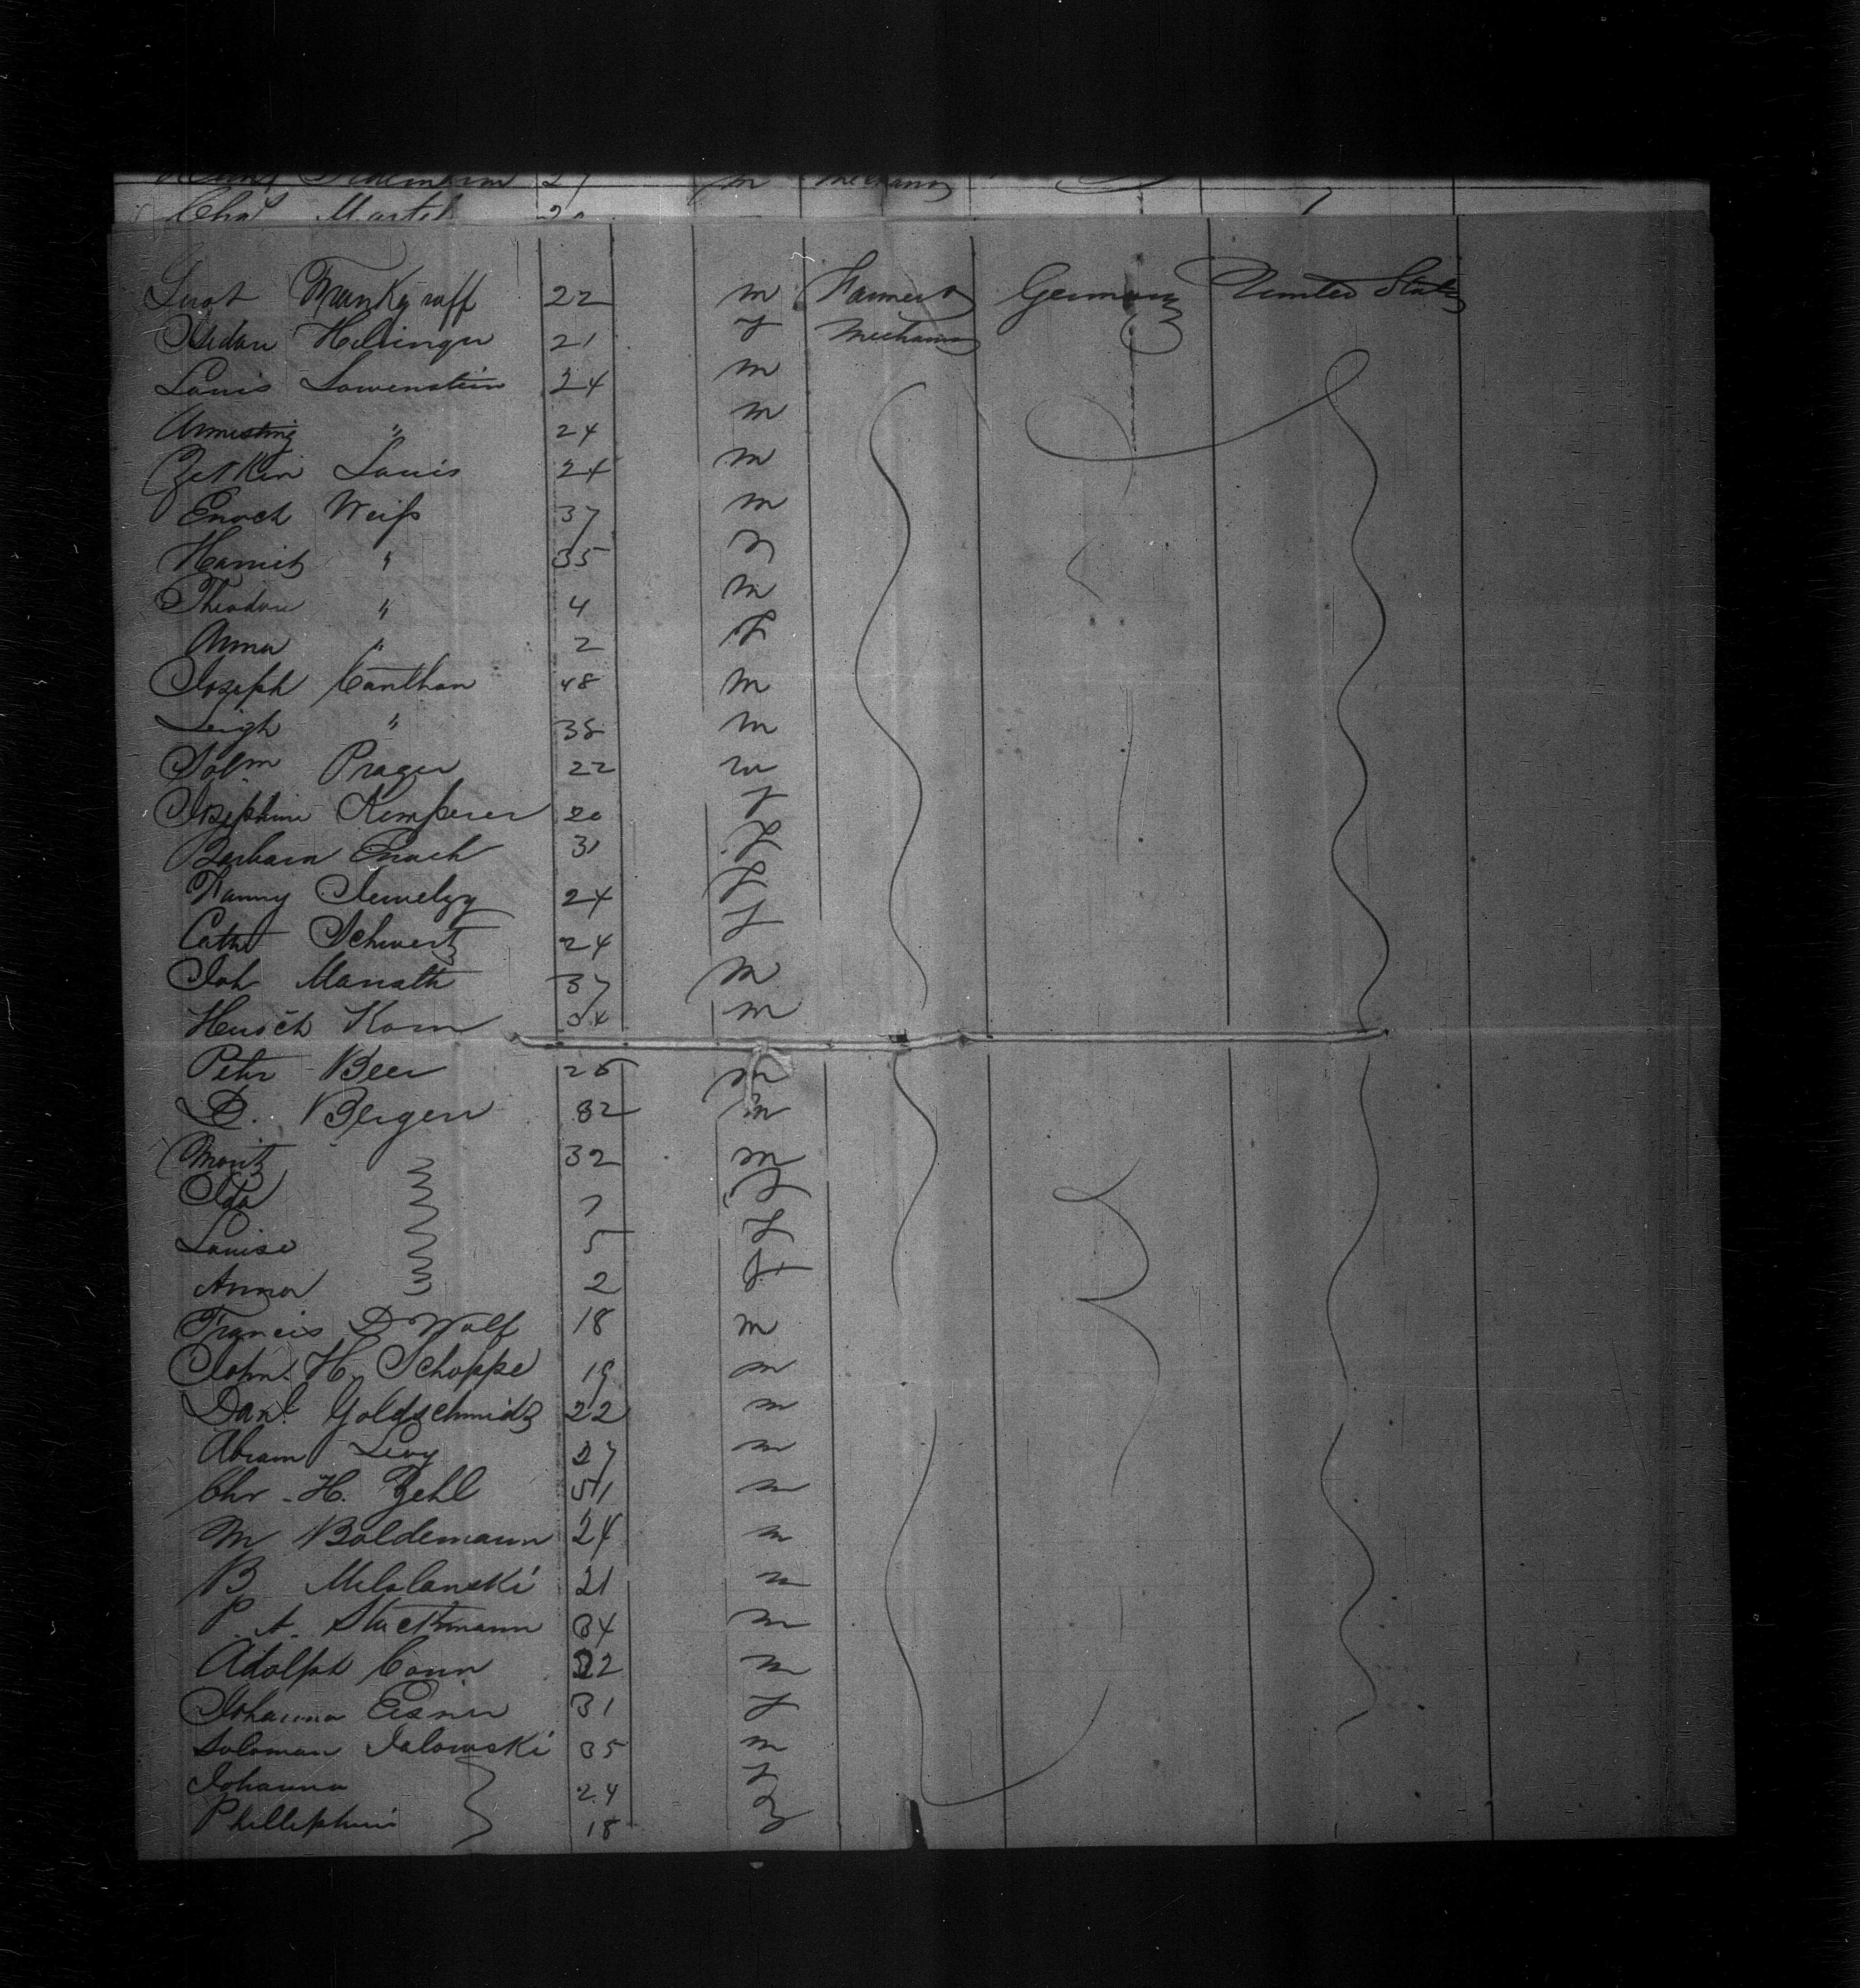 27 m Mechanic
Chas Martel 20
22 m Farmer Germany United States
21 f Mechanic
Louis Lowenstein 24 m
" 24 m
Louis 24 m
Enoch Weiſs 37 m
" 35
Theodore " 4 m
Anna " 2 f
Joseph Canthan 48 m
Leigh " 38 m
Solm Prager 22 m
Josephine Kemperer 20 f
Barbara Enoch 31 f
Fanny 24 f
Cath Schwertz 24 f
Joh Manath 37 m
Hersch Korn 34 m
Petr Beer m
D. Bergen 32 m
Moritz 32 m
Ida 7 f
Louise 5 f
Anna 2 f
Francis D Wolf 18 m
John H. Schoppe 19 m
Danl Goldschmidt 22 m
Abram Levy 27 m
Chr. H. Zehl 51 m
M Boldemann 24 m
B Miloslanski 21 m
P. A. Stuckmann 34 m
Adolph Conn 22 m
Johanna Eisner 31 f
Soloman Jalowski 35 m
Johanna 24 f
Philliphini 18 f